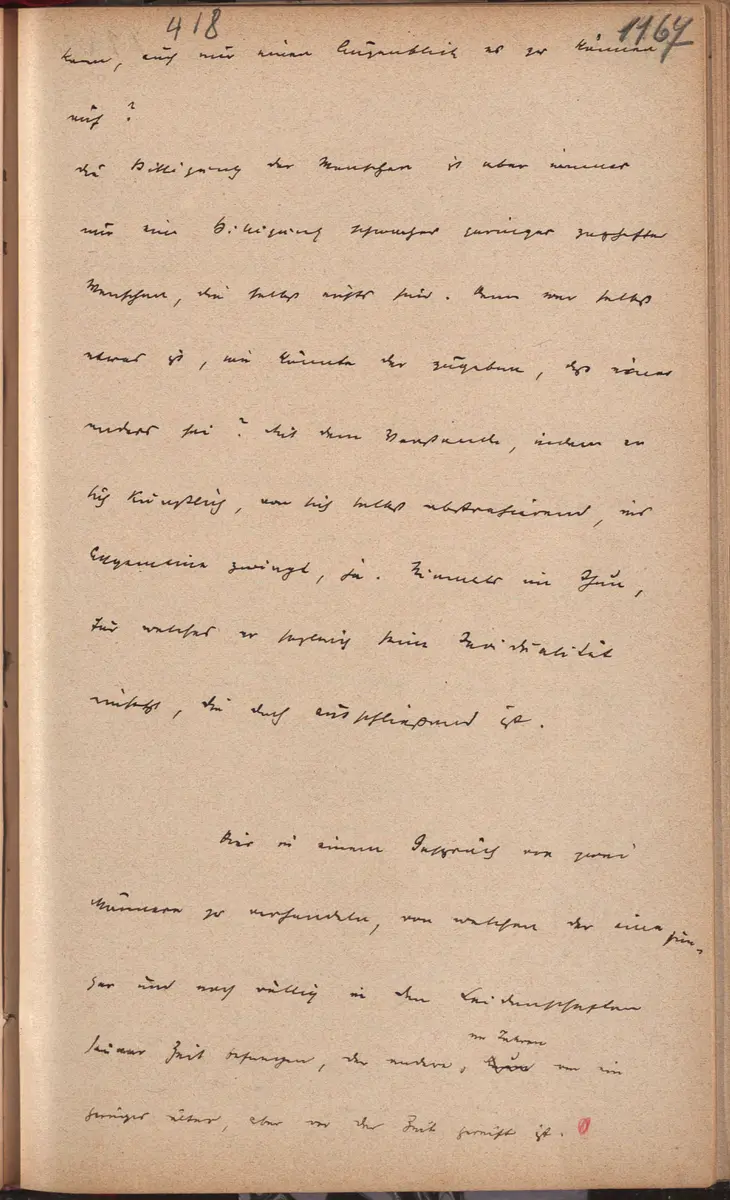 418 1167
kann, auch nur einen Augenblick es zu können
auf?
Die Billigung der Menschen ist aber immer
nur eine Billigung schwacher geringer zaghafter
Menschen, die selbst nichts sind. Denn wer selbst
etwas ist, wie könnte der zugeben, daß einer
anders sei? Mit dem Verstande, indem er
sich künstlich, von sich selbst abstrahierend, ins
Allgemeine zwingt, ja. Niemals im Thun,
für welches er sogleich seine Individualität
, die doch ausschließend ist.
Dies in einem Gespräch von zwei
Männern zu verhandeln, von welchen der eine jün-
ger und noch völlig in den Leidenschaften
an Jahren
seiner Zeit befangen, der andere, nur ein
geringes älter, aber vor der Zeit gereift ist.